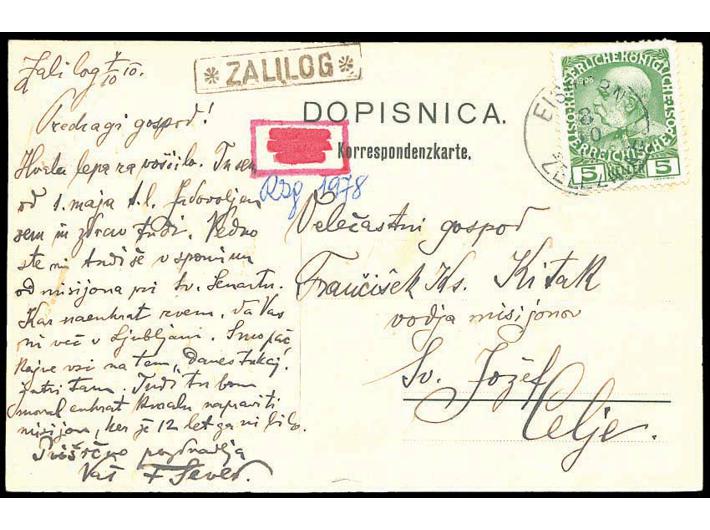 Zali log 8/10 10.
* ZALILOG *
Predragi gospod!
Hvala lepa za voščilo. Tu sem
od 1. maja t.l. Zadovoljen
sem in zdrav tudi. Vedno
ste mi tudi še v spominu
od misijona pri Sv. Lenartu.
Kar naenkrat zvem, da Vas
ni več v Ljubljani. Smo pač
vsi na tem „Danes tukaj,
jutri tam. Tudi tu bom
moral enkrat napraviti
misijon, ker je 12 let ga ni bilo.
Prisrčno pozdravlja
Vaš F Sever
DOPISNICA.
Korrespondenzkarte.
1978
Velečastni gospod
Frančišek Ks. Kitak
vodja misijonov
Sv. Jožef
Celje.
KAISERLICHE KÖNIGLICHE
ÖSTERREICHISCHE
1908
5 HELLER 5
EISNERN
ŽELEZNIKI